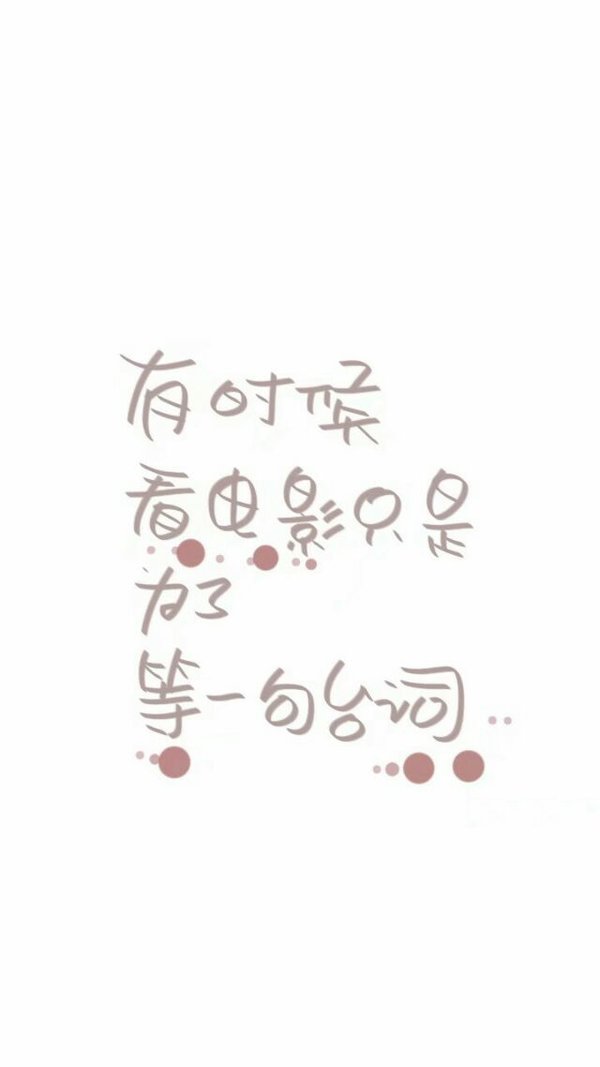 有时候
看电影只是
为了
等一句台词